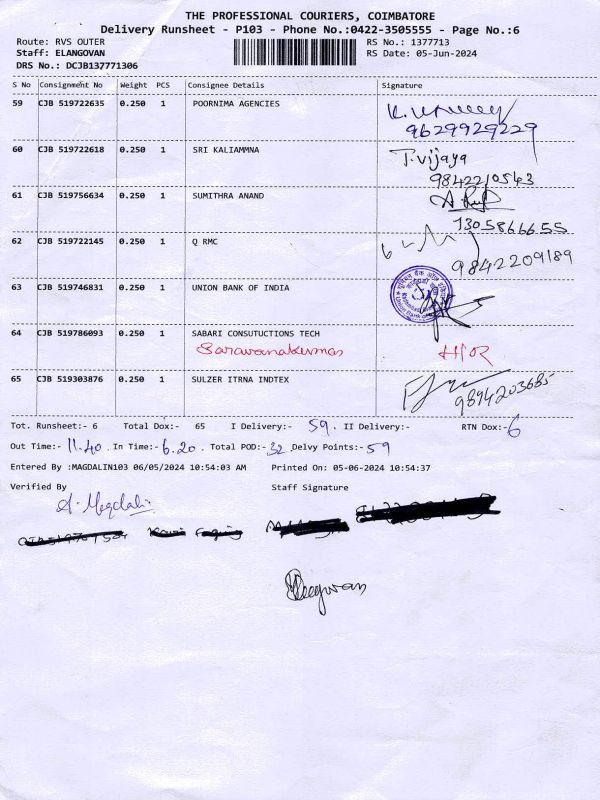 THE PROFESSIONAL COURIERS, COIMBATORE
Delivery Runsheet - P103 - Phone No.:0422-3505555 - Page No.:6
Route: RVS OUTER RS No.: 1377713
Staff: ELANGOVAN RS Date: 05-Jun-2024
DRS No.: DCJB137771306
S No Consignment No Weight PCS Consignee Details Signature
59 CJB 519722635 0.250 1 POORNIMA AGENCIES
9629929229
60 CJB 519722618 0.250 1 SRI KALIAMMNA T.vijaya
9842210543
61 CJB 519756634 0.250 1 SUMITHRA ANAND
7305866655
62 CJB 519722145 0.250 1 Q RMC
9842209189
63 CJB 519746831 0.250 1 UNION BANK OF INDIA
64 CJB 519786093 0.250 1 SABARI CONSUTUCTIONS TECH
Saravanakumar H/OR
65 CJB 519303876 0.250 1 SULZER ITRNA INDTEX
9894203685
Tot. Runsheet:- 6 Total Dox:- 65 I Delivery:- 59. II Delivery:- RTN Dox:- 6
Out Time:- 11.40 In Time:- 6.20 Total POD:- 32 Delvy Points:- 59
Entered By :MAGDALIN103 06/05/2024 10:54:03 AM Printed On: 05-06-2024 10:54:37
Verified By Staff Signature
A. Magdali